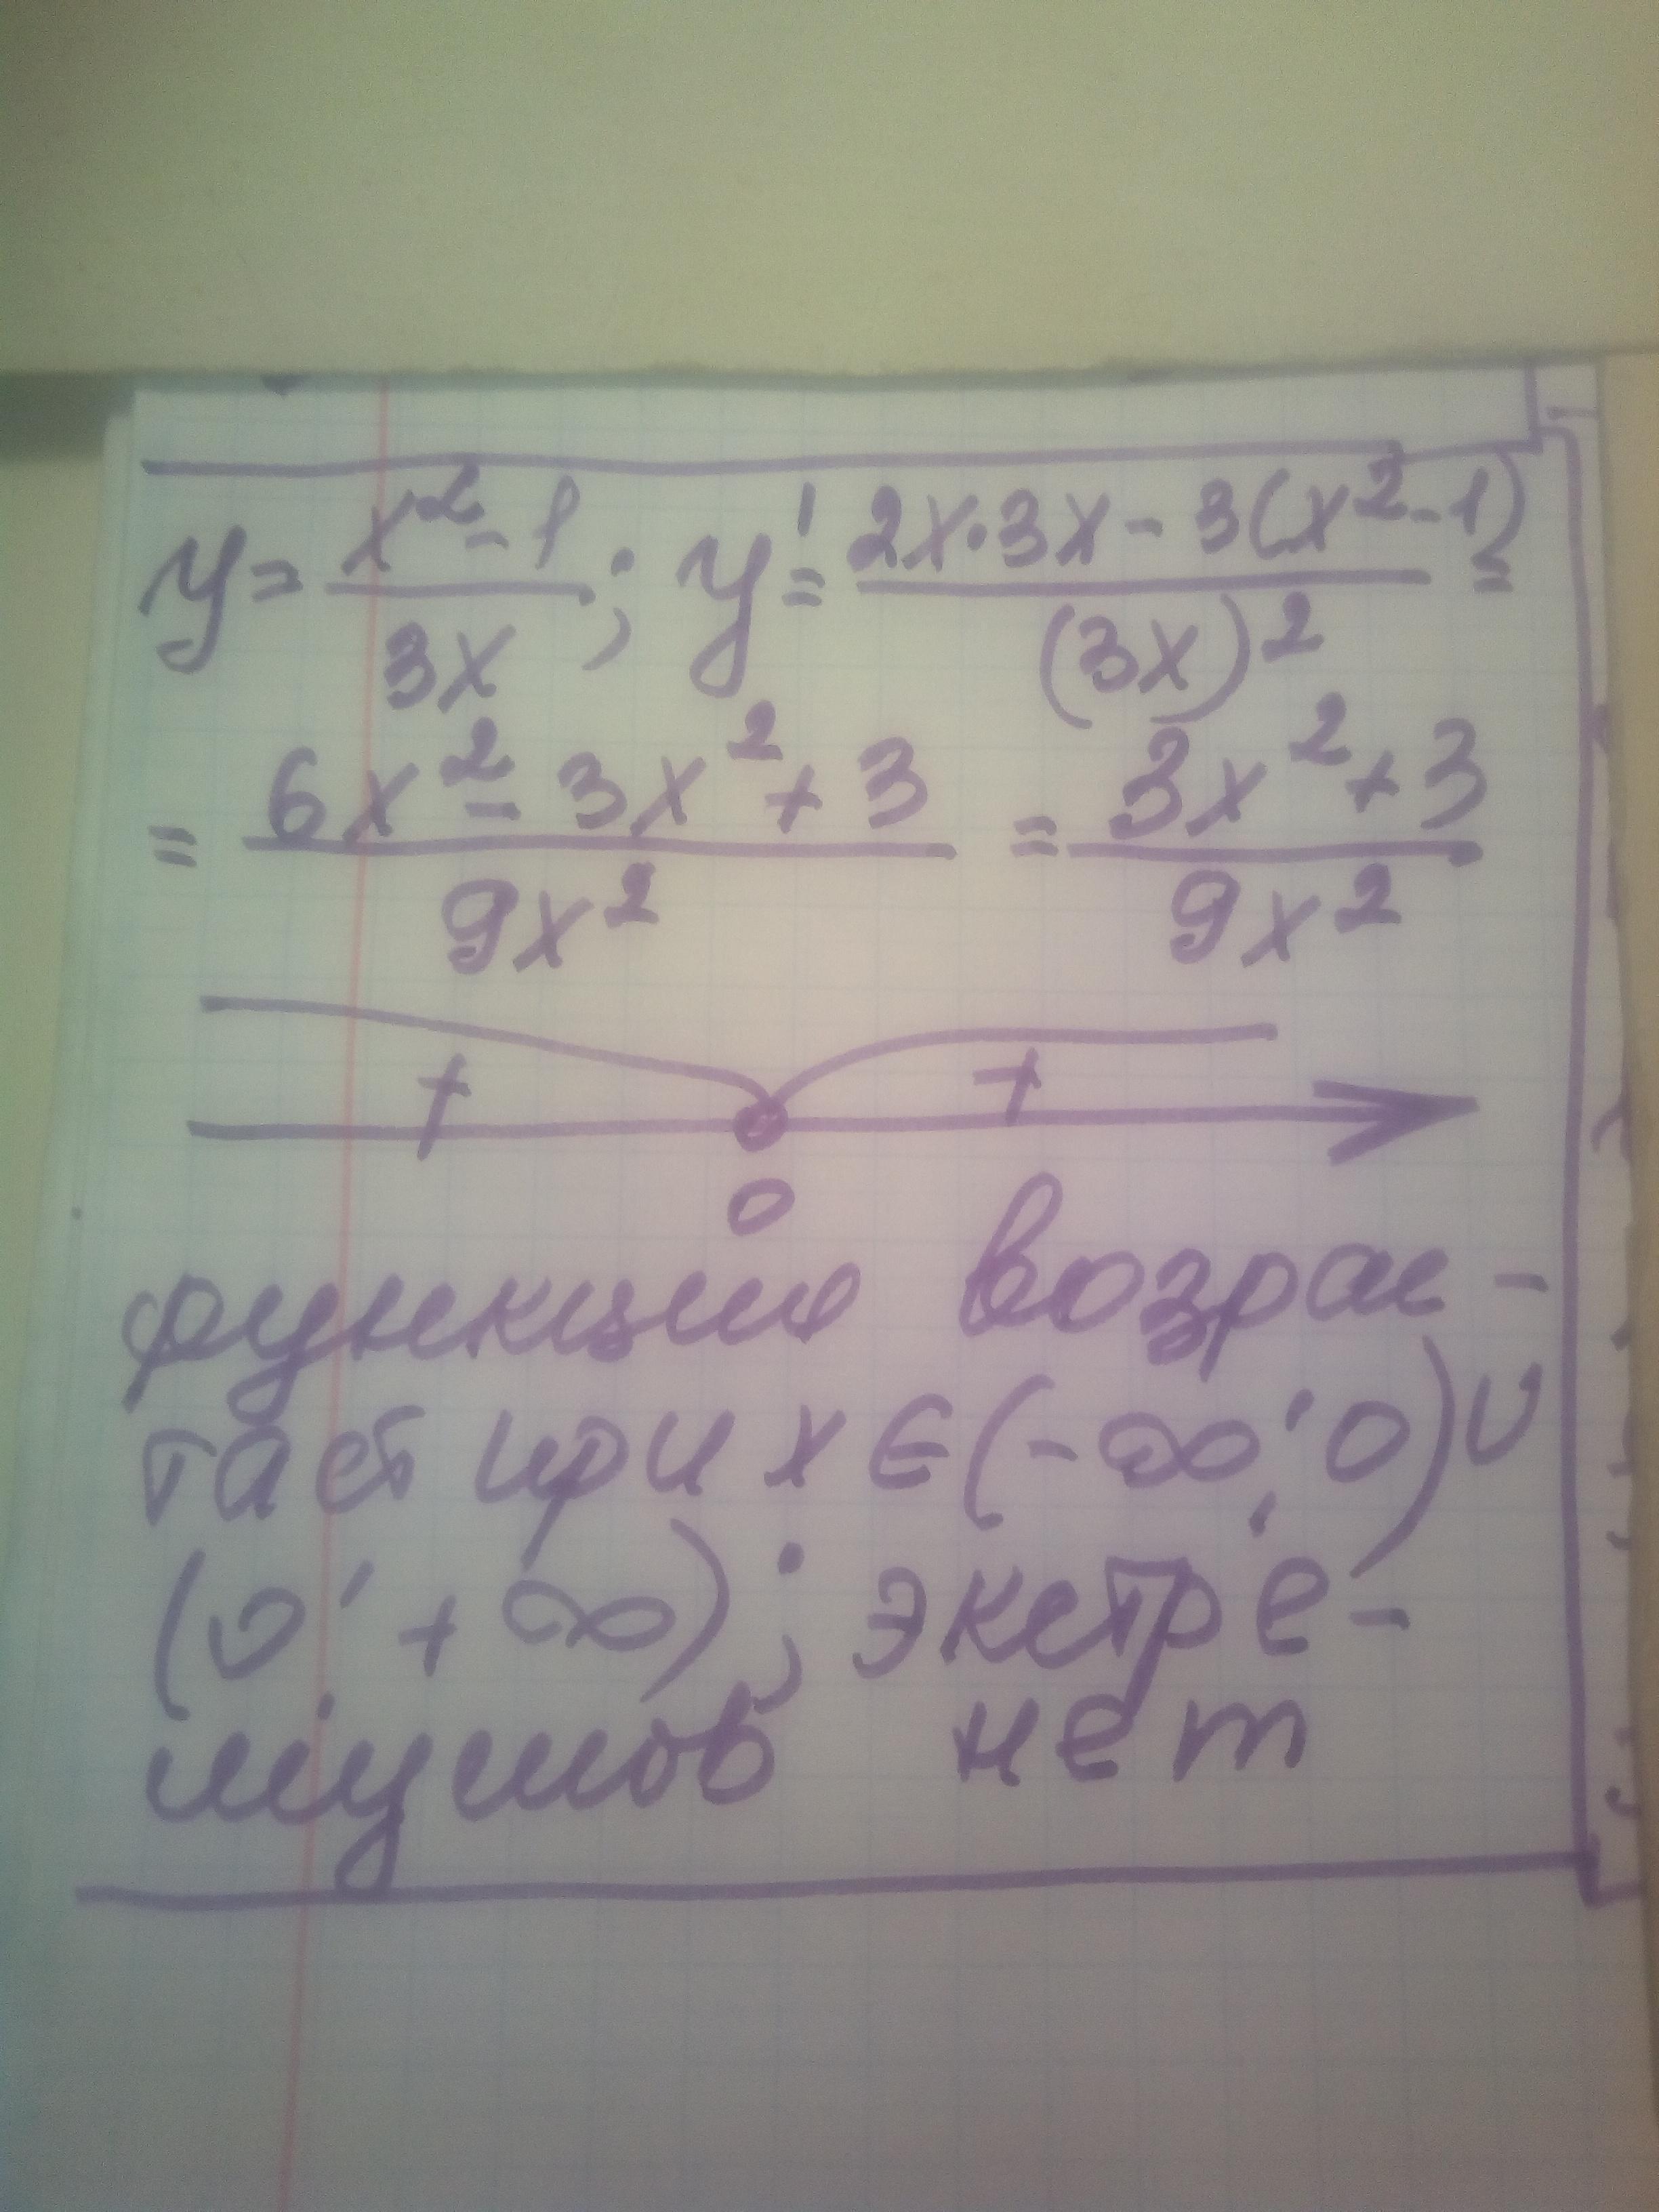 y = (x² - 1) / (3x) ; y' = (2x·3x - 3(x² - 1)) / (3x)² =
= (6x² - 3x² + 3) / (9x²) = (3x² + 3) / (9x²)
+ +
0
функция возрас-
тает при x ∈ (-∞; 0) ∪
(0; +∞) ; экстре-
мумов нет